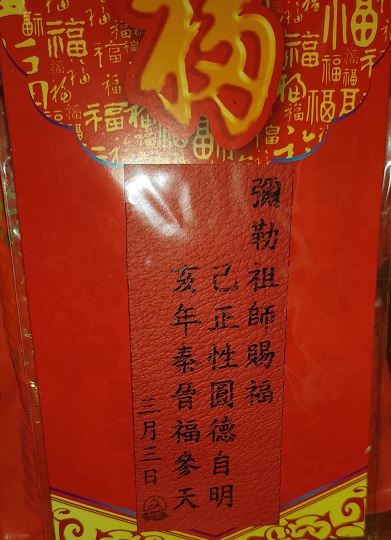 福
彌勒祖師賜福
己正性圓德自明
亥年秦晉福參天
三月三日